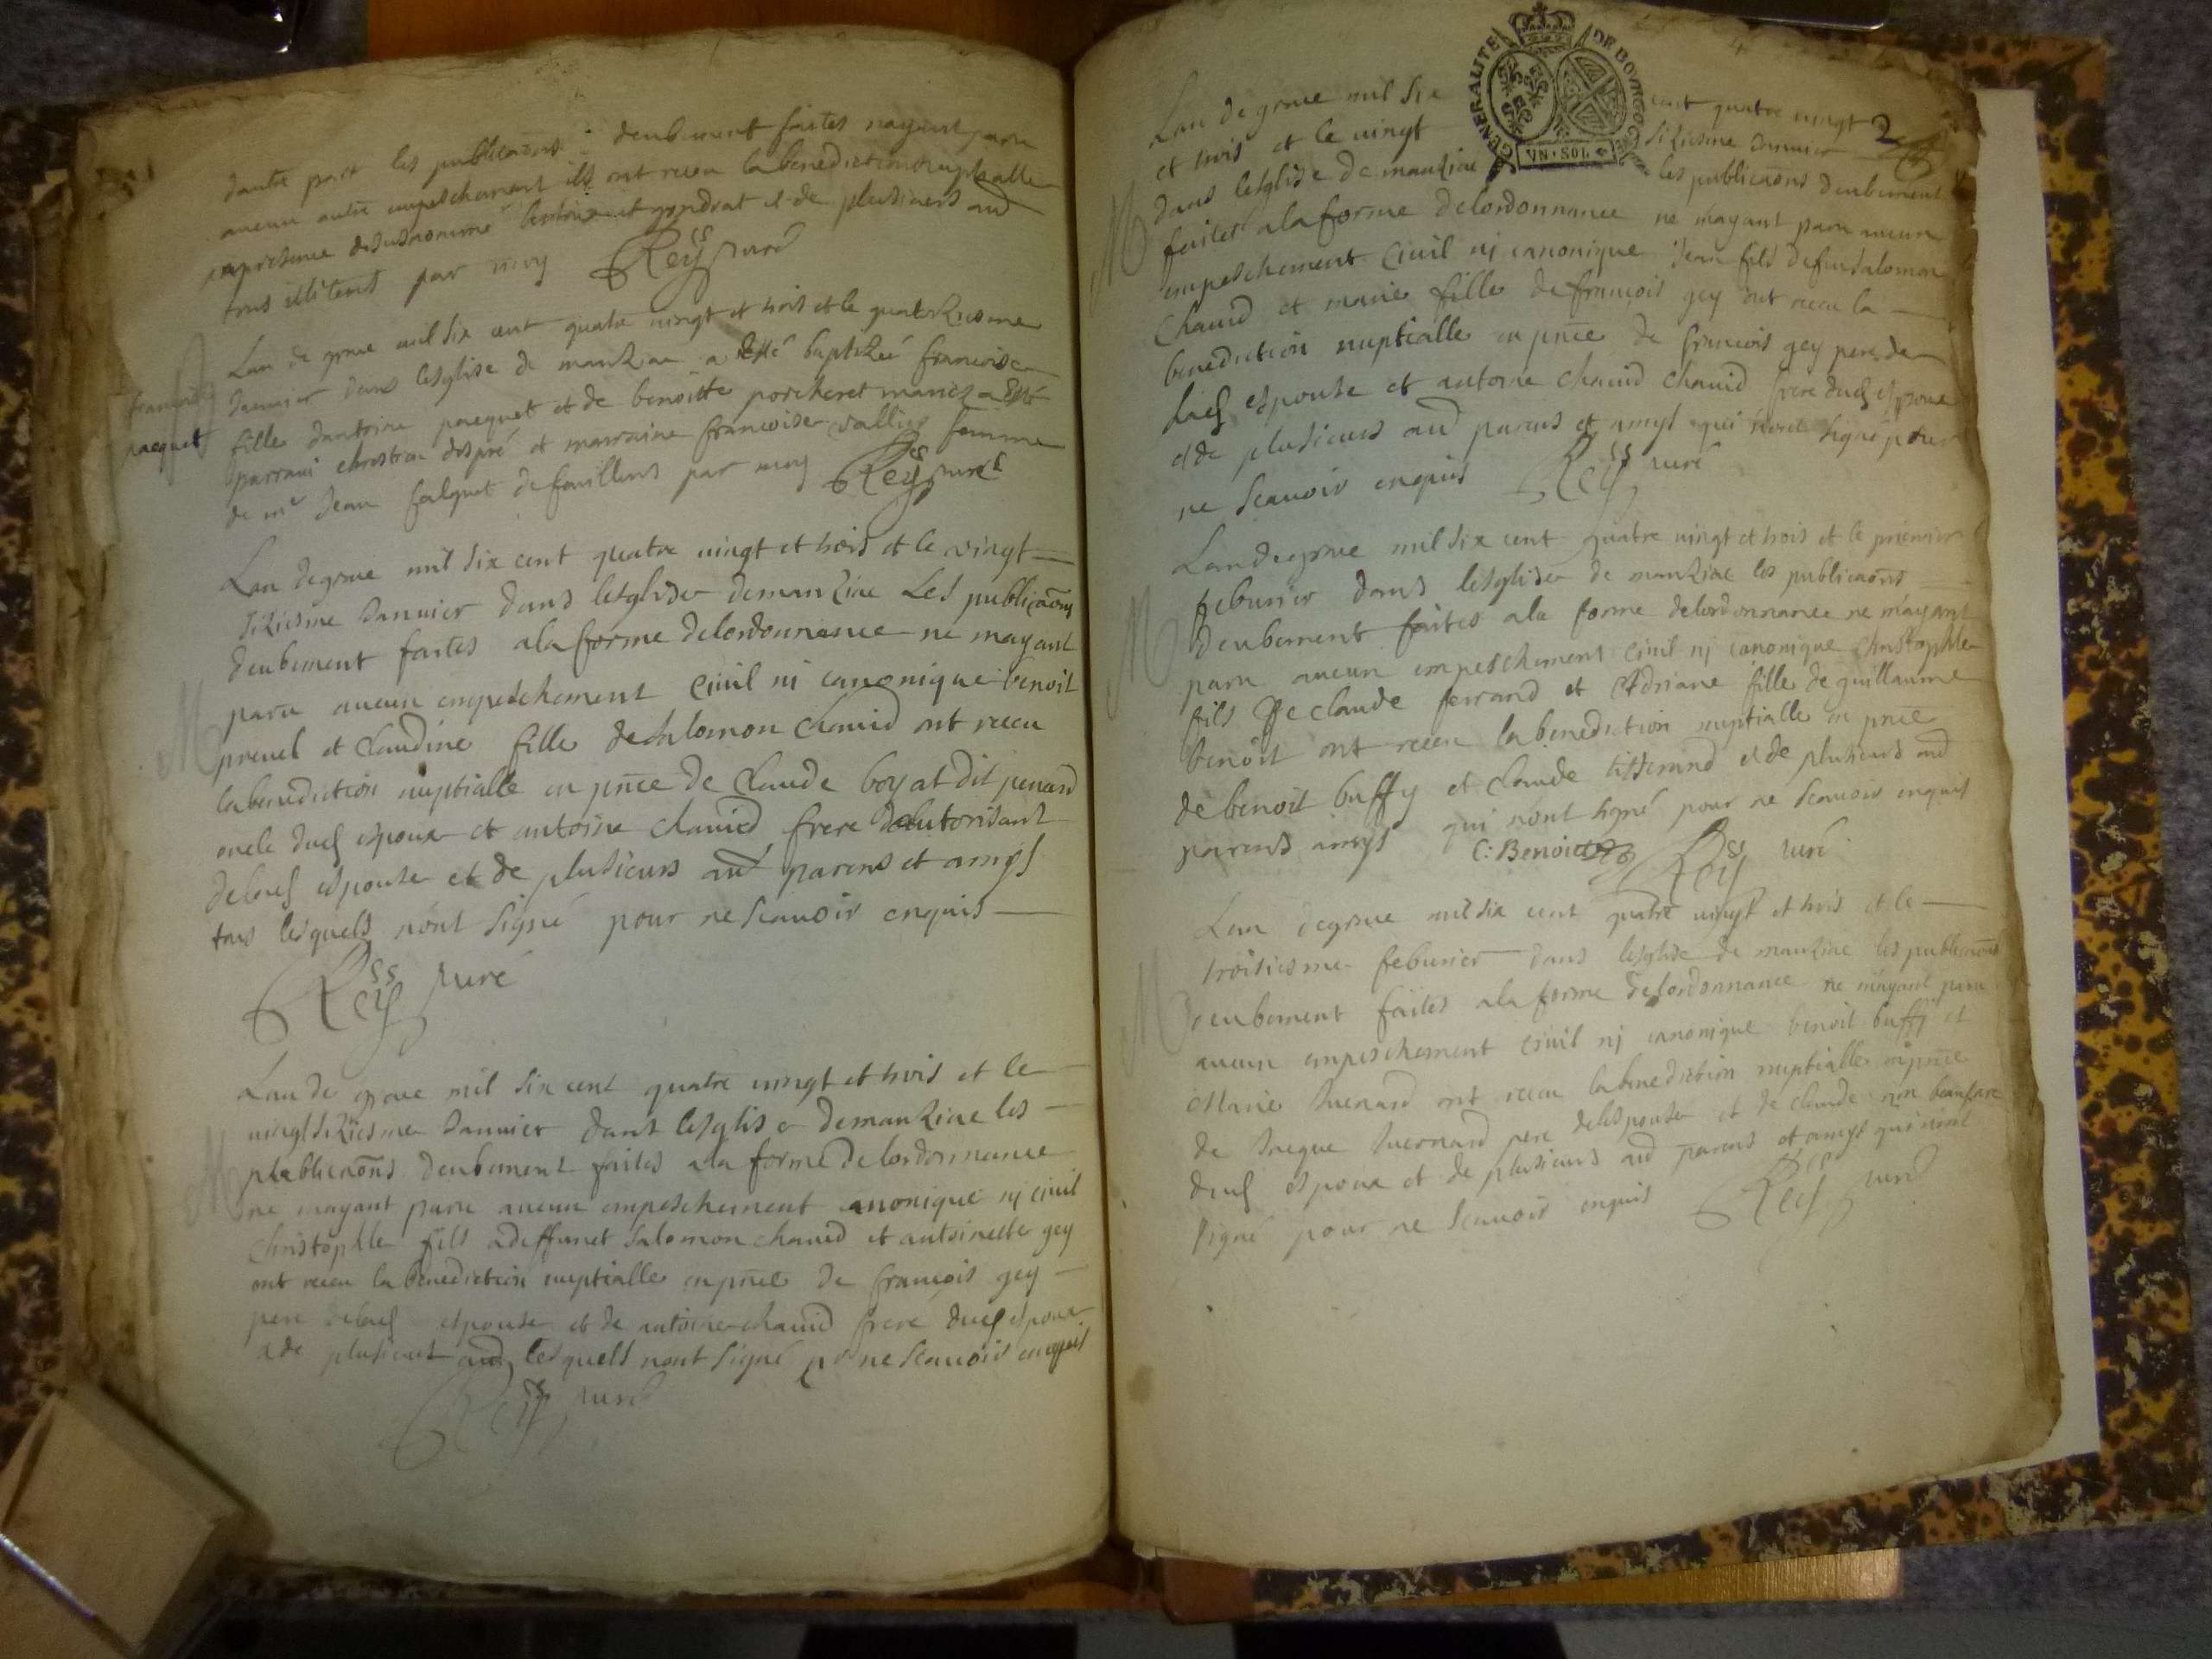 dautre part les publicaons deubement faites nayant paru
aucun autre empeschement ils ont receu la benediction nuptialle
en presence desusnommé et gondrat et de plusieurs aud
tous illiterés par moy Reyss curé
Lan de grace mil six cent quatre vingt et trois et le quatorziesme
Janvier dans lesglise de manziac a esté baptizée francoise
francoise
pacquet
fille dantoine pacquet et de benoitte porcheret mariez a esté
parrain christon dupré et marraine francoise vallier femme
de me Jean falquet de fouillens par moy Reyss curé
Lan de grace mil six cent quatre vingt et trois et le vingt
siziesme Janvier dans lesglise de manziac Les publicaons
deubement faites a la forme delordonnance ne mayant
M
paru aucun empeschement Civil ni canonique benoit
prevel et Claudine fille de salomon Chanid ont receu
la benediction nuptialle en pnce de Claude boyat dit penard
oncle dud espoux et antoine chanid frere dautorisant
de lad espouse et de plusieurs aud parens et amys
tous lesquels nont signé pour ne scavoir enquis
Reyss curé
Lan de grace mil six cent quatre vingt et trois et le
vingt siziesme Janvier dans lesglise de manziac les
M
publicaons deubement faites a la forme de lordonnance
ne mayant paru aucun empeschement canonique ni civil
Christophle fils a deffunct salomon chanid et antoinette gey
ont receu la benediction nuptialle en pnce de francois gey
pere delad espouse et de antoine chanid frere dud espoux
et de plusieurs aud lesquels nont signé pr ne scavoir enquis
Reyss curé
GENERALITE DE BOURGOGNE
VN SOL
2
Lan de grace mil six cent quatre vingt
et trois et le vingt siziesme Janvier
dans lesglise de manziac les publicaons deubement
M
faites a la forme delordonnance ne mayant paru aucun
empeschement Civil ni canonique Jean fils defun salomon
Chanid et marie fille de francois gey ont receu la
benediction nuptialle en pnce de francois gey pere de
lad espouse et antoine chanid chanid frere dud espoux
et de plusieurs aud parens et amys qui nont signé pour
ne scavoir enquis Reyss curé
Lan de grace mil six cent quatre vingt et trois et le premier
feburier dans lesglise de manziac les publicaons
M
deubement faites a la forme delordonnance ne mayant
paru aucun empeschement civil ni canonique Christophle
fils de claude ferrand et Adriane fille de guillaume
benoit ont receu la benediction nuptialle en pnce
de benoit buffy et claude tisserand et de plusieurs aud
parens amys qui nont signé pour ne scavoir enquis
C: Benoit Reyss curé
Lan de grace mil six cent quatre vingt et trois et le
troisiesme feburier dans lesglise de manziac les publicaons
M
deubement faites a la forme delordonnance ne mayant paru
aucun empeschement civil ni canonique benoit buffy et
Marie Juenard ont receu la benediction nuptialle en pnce
de Jacque Juernard pere delespouse et de claude mon beaufrere
dud espoux et de plusieurs aud parens et amys qui nont
signé pour ne scavoir enquis Reyss curé